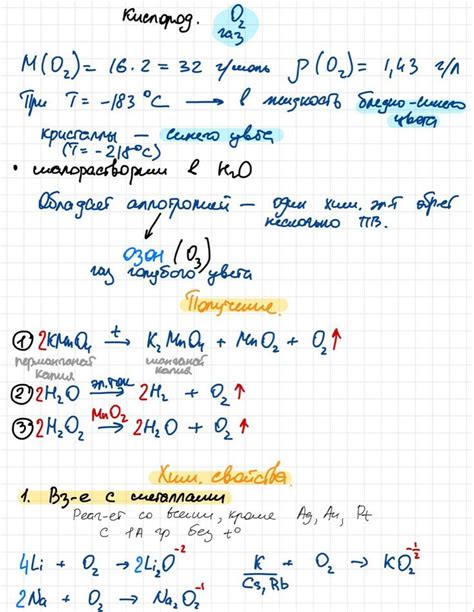 Кислород. O₂
газ
M(O₂) = 16·2 = 32 г/моль ρ(O₂) = 1,43 г/л
При T = -183°C ⟶ в жидкость бледно-синего
цвета
кристаллы – синего цвета
(T = -218°C)
• малорастворим в H₂O
Обладает аллотропией – один хим. эл-т образ-ет
несколько ПВ.
озон (O₃)
газ голубого цвета
Получение.
① 2KMnO₄ →(t) K₂MnO₄ + MnO₂ + O₂↑
перманганат манганат
калия калия
② 2H₂O →(эл. ток) 2H₂ + O₂↑
③ 2H₂O₂ →(MnO₂) 2H₂O + O₂↑
Хим. свойства.
1. Вз-е с металлами
Реаг-ет со всеми, кроме Ag, Au, Pt
с IA гр без t°
4Li + O₂ → 2Li₂O⁻² K + O₂ → KO₂^(-1/2)
Cs, Rb
2Na + O₂ → Na₂O₂⁻¹